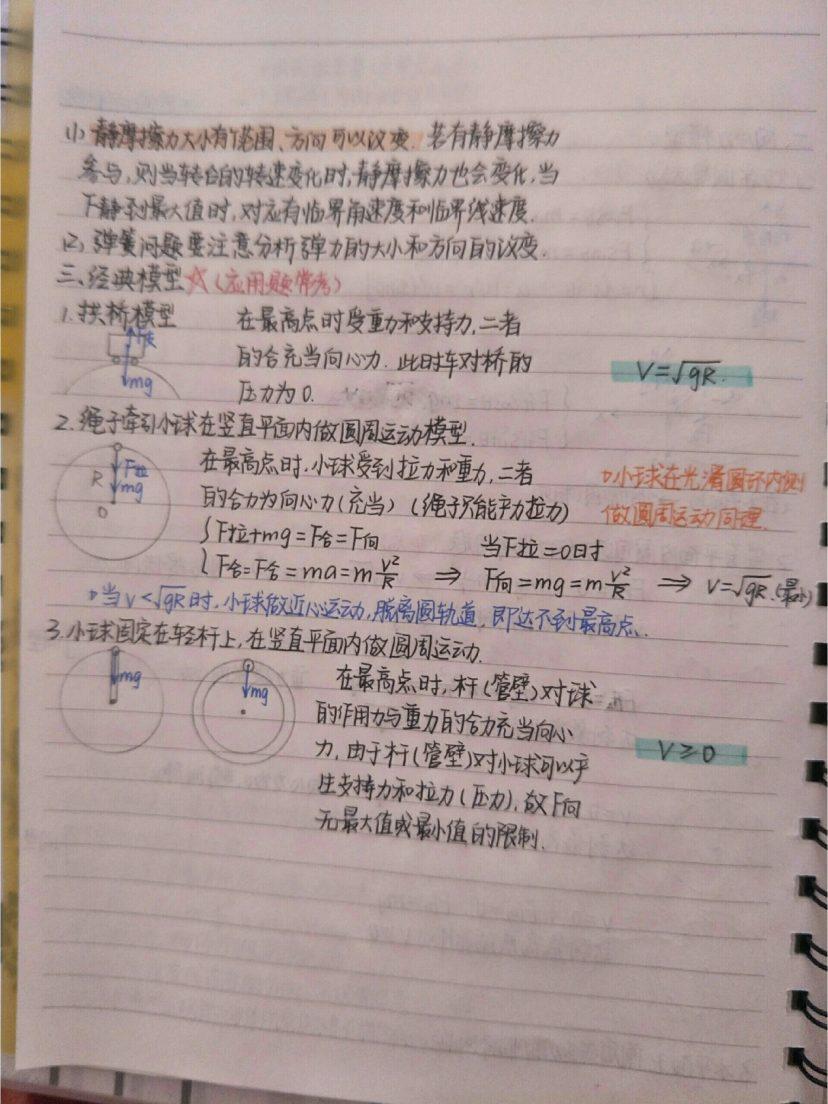 (1) 静摩擦力大小有个范围、方向可以改变. 若有静摩擦力
参与,则当转台的转速变化时,静摩擦力也会变化,当
F静到最大值时,对应有临界角速度和临界线速度.
(2) 弹簧问题要注意分析弹力的大小和方向的改变.
三、经典模型☆(应用题常考)
1. 拱桥模型
在最高点时受重力和支持力,二者
的合充当向心力. 此时车对桥的
压力为0.
F支
mg
V=√gR.
2. 绳子牵引小球在竖直平面内做圆周运动模型.
在最高点时,小球受到拉力和重力,二者
的合力为向心力(充当) (绳子只能产力拉力)
F拉
mg
R
O
▷小球在光滑圆环内侧
做圆周运动同理.
{F拉+mg=F合=F向 当F拉=0时
{F合=F合=ma=m v²/R ⇒ F向=mg=m v²/R ⇒ V=√gR.(最小)
▷当V<√gR时,小球做近心运动,脱离圆轨道,即达不到最高点.
3. 小球固定在轻杆上,在竖直平面内做圆周运动.
mg
mg
在最高点时,杆(管壁)对球
的作用力与重力的合力充当向心
力,由于杆(管壁)对小球可以产
生支持力和拉力(压力),故F向
无最大值或最小值的限制.
V≥0